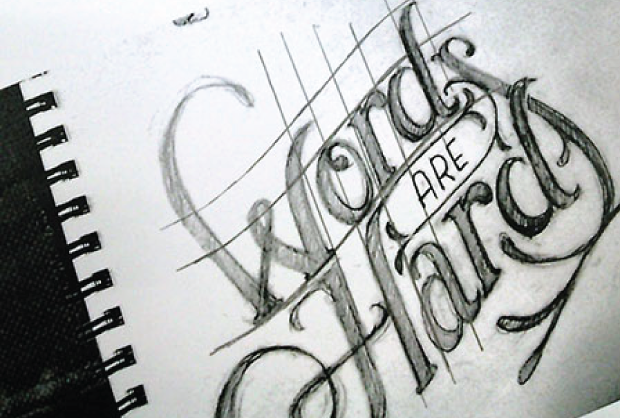 Words
ARE
Hard